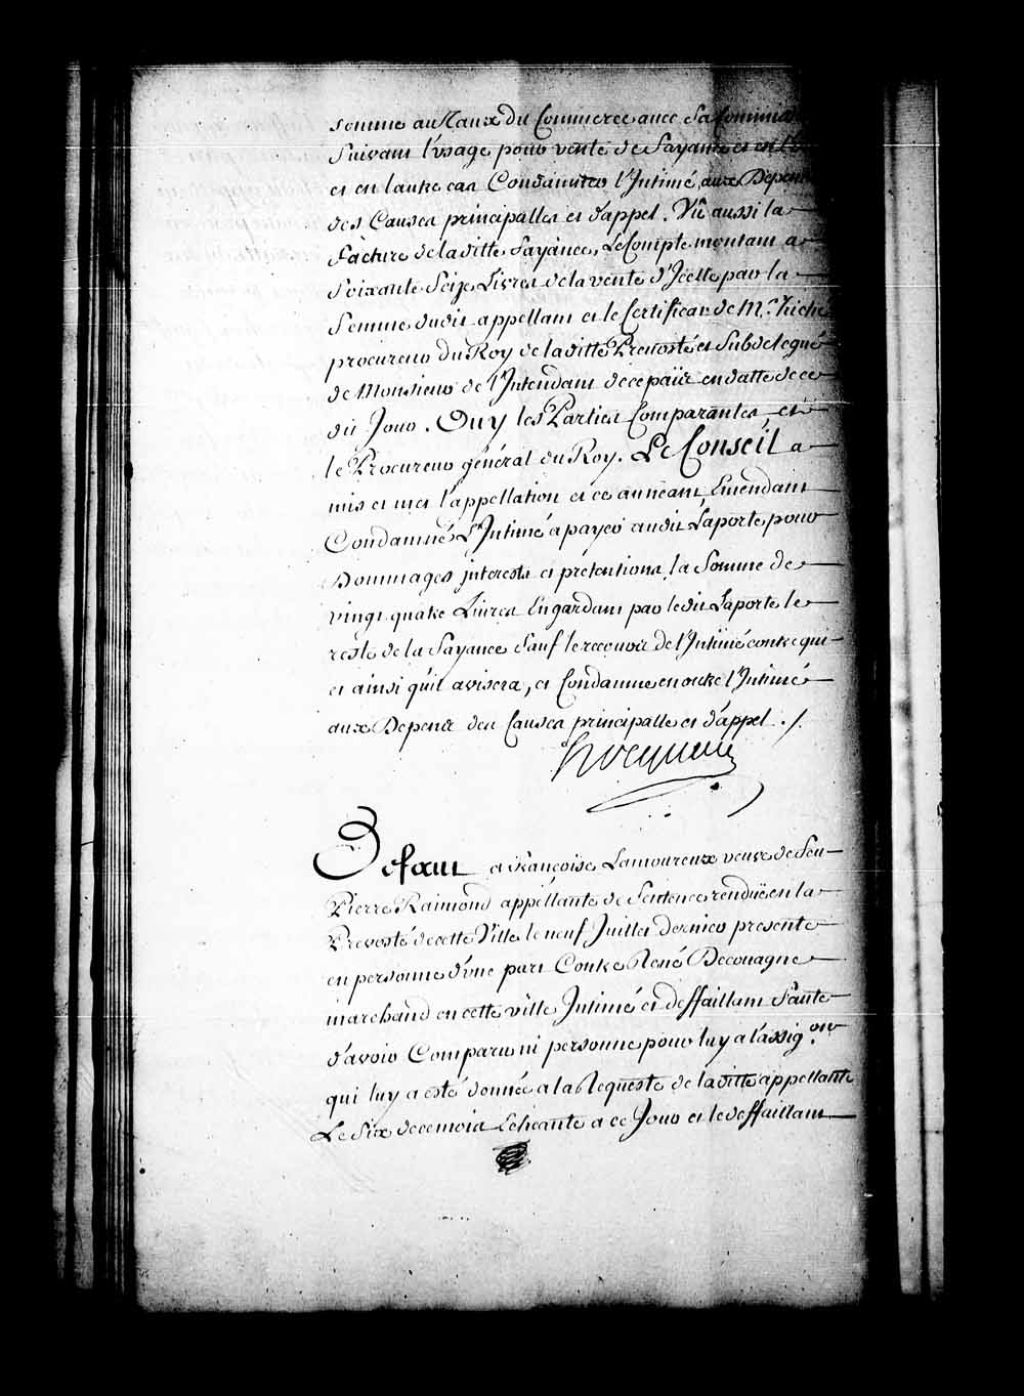 somme au Taux du Commerce avec sa
Suivant l'Usage pour vente de fayance et en
et en lautre cas Condamner l'Intimé aux Depens
des Causes principalles et d'appel. Vû aussi la
facture de ladite fayance, Le Compte montant a
Soixante Seize Livres de la vente d'Icelle par la
femme dudit appellant et le Certificat de Mr. hiché
procureur du Roy de ladite Prevosté et Subdelegué
de Monsieur de l'Intendant de ce païs en datte de ce
dit Jour. Ouy les Parties Comparantes, et
le Procureur général du Roy. Le Conseil a
mis et met l'appellation et ce au neant, Emendant
Condamne L'Intimé a payer audit Laporte pour
Dommages interests et pretentions, la Somme de
vingt quatre Livres En gardant par ledit Laporte le
reste de la fayance sauf le recouvrir de l'Intimé contre qui
et ainsi qu'il avisera, et Condamne en outre l'Intimé
aux Depens des Causes principalle et d'appel ./.
hocquart
Defaut a françoise Lamoureux veuve de feu
Pierre Raimond appellante de Sentence rendüe en la
Prevosté de cette Ville le neuf Juillet dernier presente
en personne d'une part Contre René Decouagne
marchand en cette ville Intimé et deffaillant faute
d'avoir Comparu ni personne pour luy a l'assig.on
qui luy a esté donnée a la Requeste de ladite appellante
Le Six de ce mois Echeante a ce Jour et le deffaillant